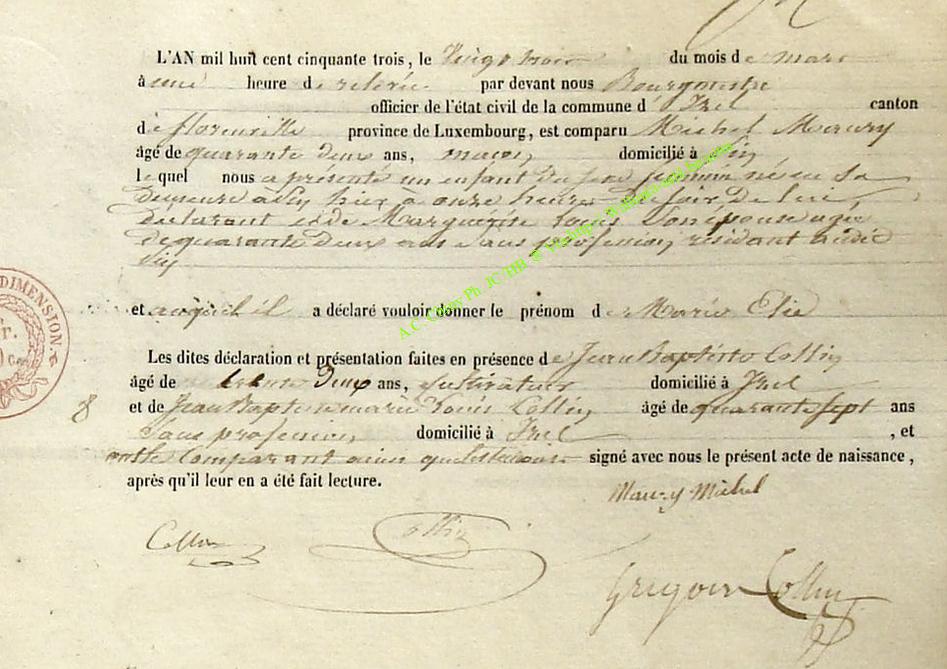 L'AN mil huit cent cinquante trois, le Vingt trois du mois de mars
à une heure de relevée par devant nous Bourgmestre
officier de l'état civil de la commune d' Izel canton
de florenville province de Luxembourg, est comparu Michel Maury
âgé de quarante deux ans, maçon domicilié à Pin
lequel nous a présenté un enfant du sexe feminin né en sa
demeure à Pin hier à onze heures du soir de lui
declarant et de Marguerite Louis Son épouse agée
de quarante deux ans Sans profession, résidant audit
Pin
et auquel il a déclaré vouloir donner le prénom de Marie Elie
Les dites déclaration et présentation faites en présence de Jean Baptiste Collin
âgé de deux ans, Cultivateur domicilié à Izel
et de Jean Baptiste marie Louis Collin, âgé de quarante sept ans
Sans profession, domicilié à Izel , et
Comparant ainsi que signé avec nous le présent acte de naissance,
après qu'il leur en a été fait lecture.
Maury Michel
Collin
Collin
Grégoire Collin
DIMENSION
A.C. Chiny Ph JC/HH